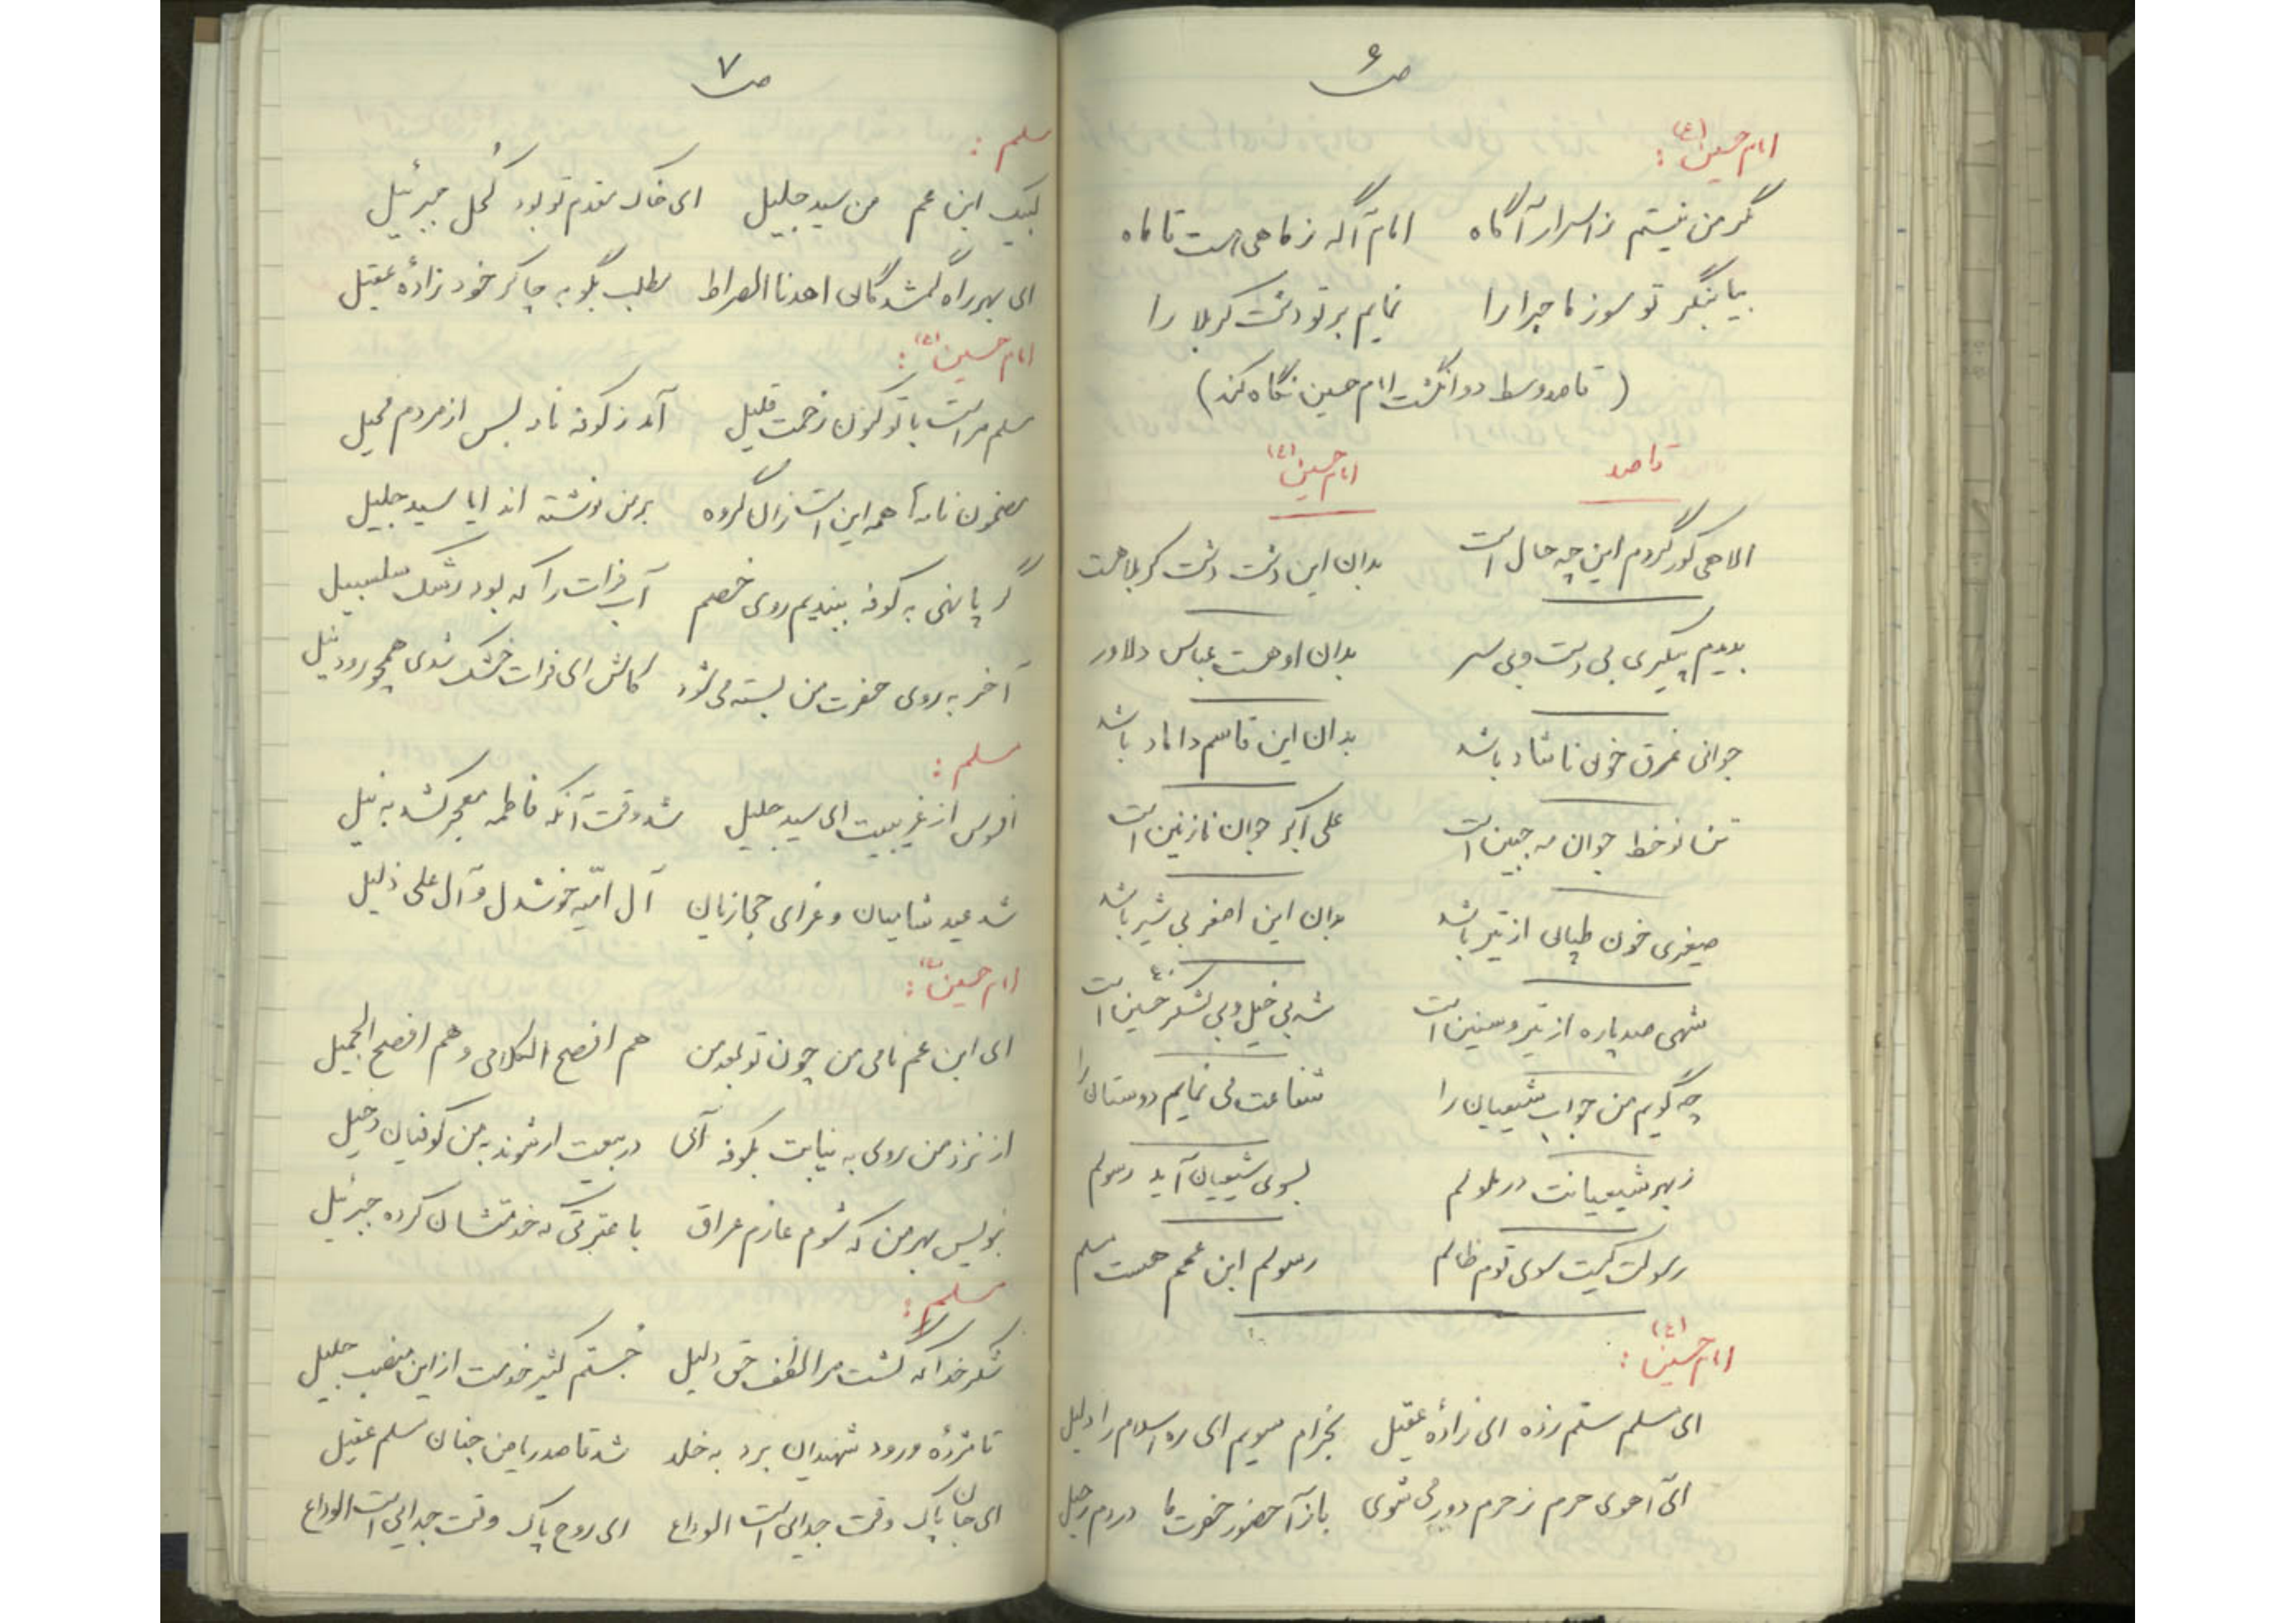 ص ۶
امام حسین (ع) :
مگر من نیستم ز اسرار آگاه امام آگه ز ماهی هست تا ماه
بیا بنگر تو سوز ماجرا را نمایم بر تو دشت کربلا را
( قاصد وسط دو انگشت امام حسین نگاه کند )
قاصد امام حسین (ع)
الاهی کور گردم این چه حال است بدان این دشت دشت کربلا هست
بدیدم پیکری بی دست و بی سر بدان او هست عباس دلاور
جوانی غرق خون ناشاد باشد بدان این قاسم داماد باشد
نوخط جوان مه جبین است علی اکبر جوان نازنین است
صغیری خون طپان از تیر باشد بدان این اصغر بی شیر باشد
شهی صد پاره از تیر و سنین است شه بی خیل و بی لشکر حسین است
چه گویم من جواب شیعیان را شفاعت می نمایم دوستان را
زبهر شیعیانت در ملولم بسوی شیعیان آید رسولم
رسولت کیست سوی قوم ظالم رسولم ابن عمم هست مسلم
امام حسین (ع) :
ای مسلم ستم زده ای زادهٔ عقیل بخرام سویم ای ره اسلام را دلیل
ای آهوی حرم ز حرم دور می شوی باز آ حضور حضرت ما در دم رحیل
ص ۷
مسلم :
لبیک ابن عم من سید جلیل ای خاک مقدم تو بود کُحل جبرئیل
ای بهر راه گمشدگان اهدنا الصراط مطلب بگو به چاکر خود زادهٔ عقیل
امام حسین (ع) :
مسلم مراست با تو کنون زحمت قلیل آمد ز کوفه نامه بس از مردم محیل
مضمون نامه‌ها همه این است زان گروه بر من نوشته اند ایا سید جلیل
گر پا نهی به کوفه ببندیم روی خصم آب فرات را که بود رشک سلسبیل
آخر به روی حضرت من بسته می شود کاش ای فرات خشک شوی همچو رود نیل
مسلم :
افسوس از غریبیت ای سید جلیل شد وقت آنکه فاطمه معجر کشد به نیل
شد عید شامیان و عزای حجازیان آل امیّه خوشدل و آل علی ذلیل
امام حسین (ع) :
ای ابن عم نامی من چون تو بعد من هم افصح الکلامی و هم افصح الجمیل
از نزد من روی به نیابت بکوفه آنی در بیعت ار شوند به من کوفیان دخیل
بنویس بهر من که شوم عازم عراق با عترتی که خدمتشان کرده جبرئیل
مسلم :
شکر خدا که گشت مرا لطف حق دلیل جُستم کثیر خدمت از این منصب جلیل
تا مژدهٔ ورود شهیدان برد به خلد شد قاصد ریاض جنان مسلم عقیل
ای جان پاک وقت جدایی است الوداع ای روح پاک وقت جدایی است الوداع